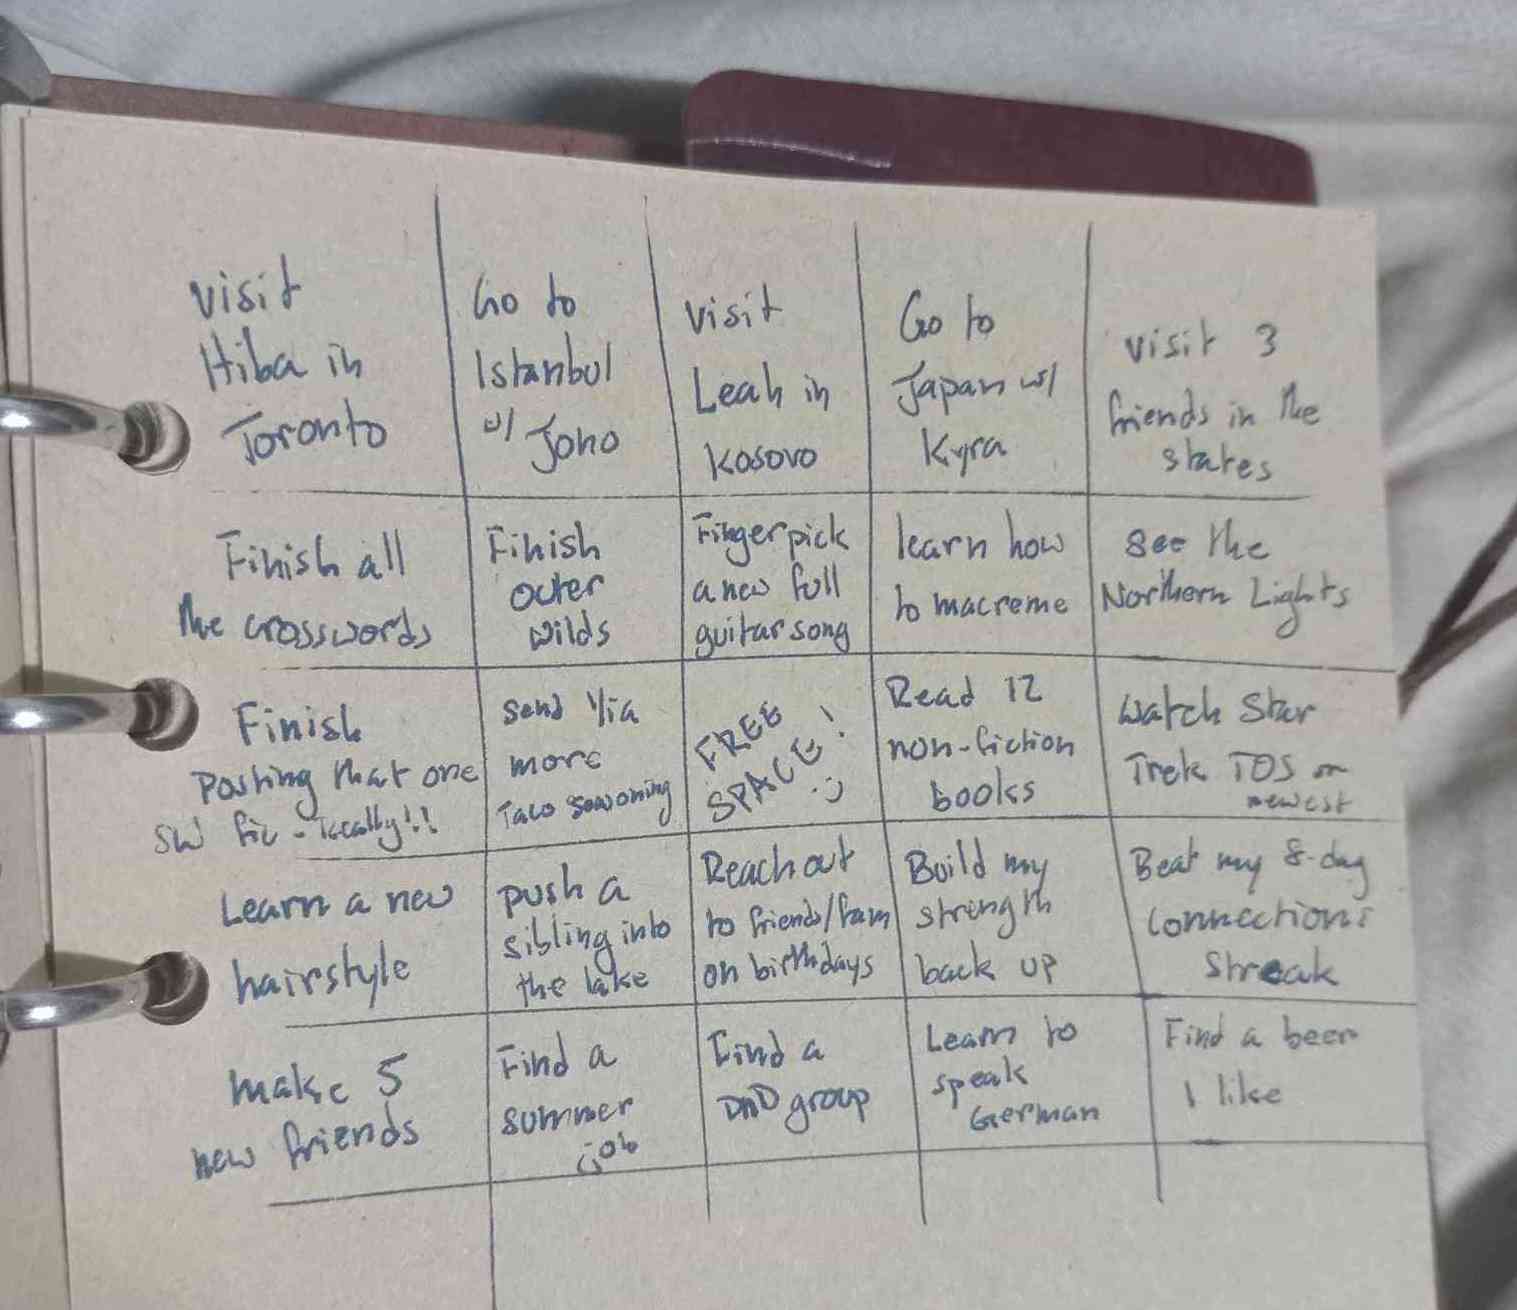 visit
Hiba in
Toronto
Go to
Istanbul
w/ Joho
visit
Leah in
Kosovo
Go to
Japan w/
Kyra
visit 3
friends in the
states
Finish all
the crosswords
Finish
outer
wilds
Fingerpick
a new full
guitar song
learn how
to macreme
see the
Northern Lights
Finish
Posting that one
SW fic -
send
more
Taco seasoning
FREE
SPACE! :)
Read 12
non-fiction
books
Watch Star
Trek TOS or
newest
Learn a new
hairstyle
push a
sibling into
the lake
Reach out
to friends/fam
on birthdays
Build my
strength
back up
Beat my 8-day
Connections
Streak
make 5
new friends
Find a
summer
job
Find a
DnD group
Learn to
speak
German
Find a beer
I like